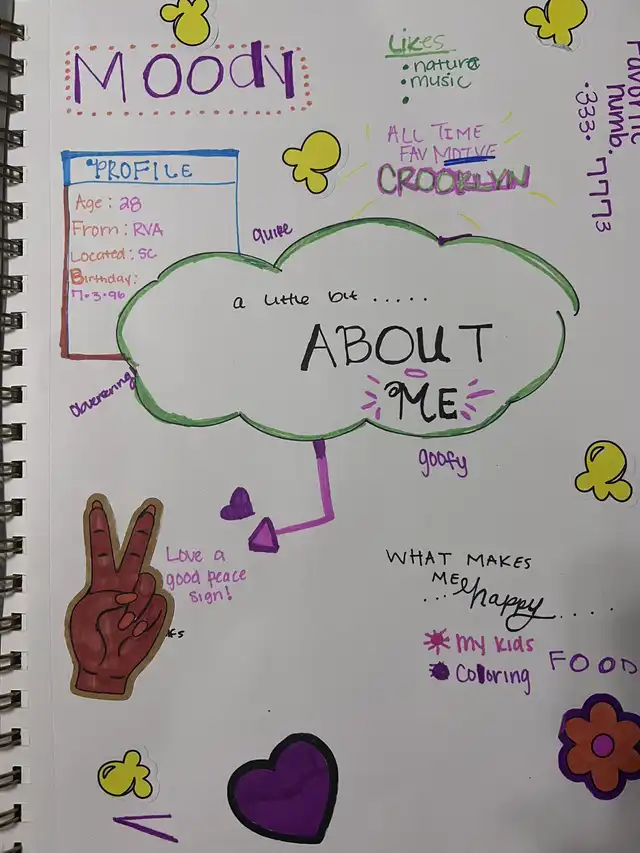 MOODY
Likes
• nature
• music
•
Favorite
numb.
•333• 7773
ALL TIME
FAV MOTIVE
CROOKLYN
PROFILE
Age: 28
From: RVA
Located: SC
Birthday:
7•3•96
quire
a little bit .....
ABOUT
ME
goofy
Love a
good peace
sign!
WHAT MAKES
ME
...happy.....
My Kids
Coloring
FOOD